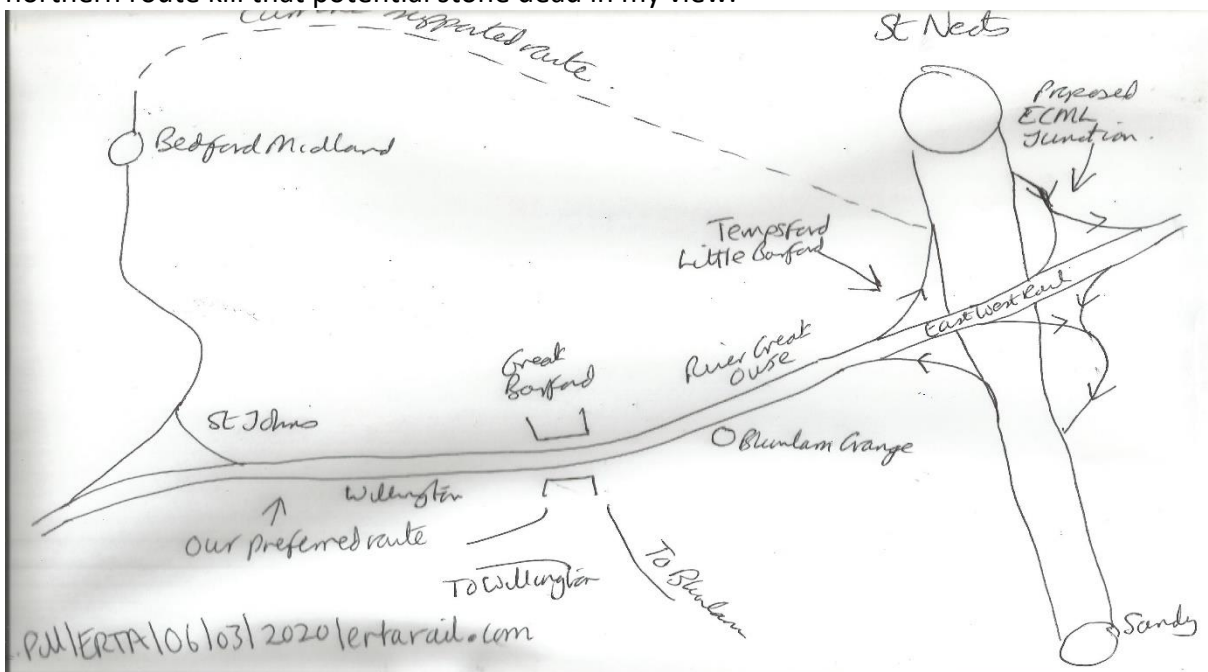 northern route kill that potential stone dead in my view.
Current supported route.
St Neots
Proposed
ECML
Junction.
Bedford Midland
Tempsford
Little Barford
East West Rail
River Great
Ouse
Great
Barford
St Johns
Blunham Grange
Willington
Our preferred route
To Willington
To Blunham
Sandy
.PM/ERTA/06/03/2020/ertarail.com